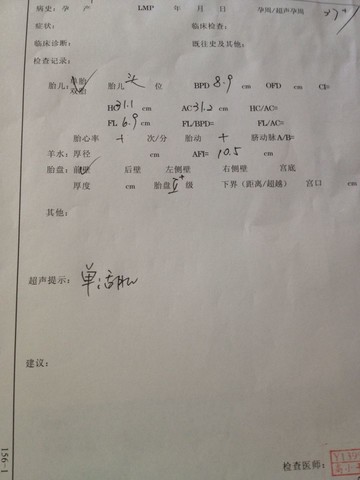 病史：孕 产 LMP 年 月 日 孕周/超声孕周 37+
症状： 临床检查：
临床诊断： 既往史及其他：
检查记录：
胎儿：单胎 胎儿 头 位 BPD 8.9 cm OFD cm CI=
双胎
HC 31.1 cm AC 31.2 cm HC/AC=
FL 6.9 cm FL/BPD= FL/AC=
胎心率 + 次/分 胎动 + 脐动脉A/B=
羊水：厚径 cm AFI= 10.5 cm
胎盘：前壁 后壁 左侧壁 右侧壁 宫底
厚度 cm 胎盘 Ⅱ+ 级 下界（距离/超越） 宫口 cm
其他：
超声提示： 单活胎
建议：
检查医师：
156-1